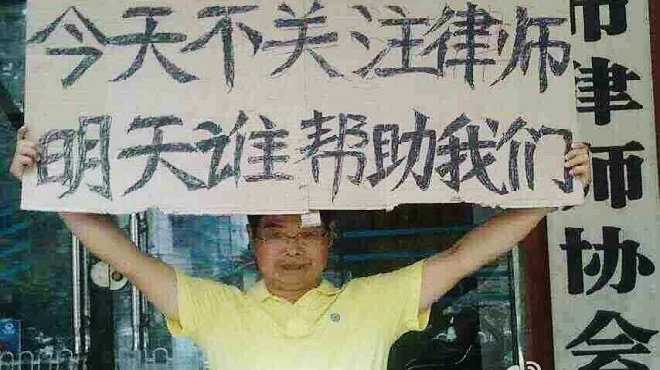 今天不关注律师
明天谁帮助我们
市律师协会